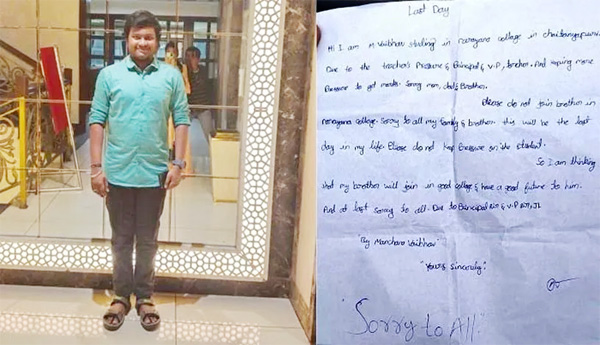 Last Day
Hi I am M Vaibhav studing in narayana college in chaitanyapuri.
Due to the teachers Pressure & Principal & V.P, Incharge. And keping more
Pressure to get marks. Sorry mom, dad & Brother.
Please do not join brother in
narayana college. Sorry to all my family & brother. this will be the last
day in my life. Please do not kep Pressure on the student.
So I am thinking
that my brother will join in good college & have a good future to him.
And at last sorry to all. Due to Principal & V.P
"By Manchana Vaibhav"
"Yours sincerely."
"Sorry to All."